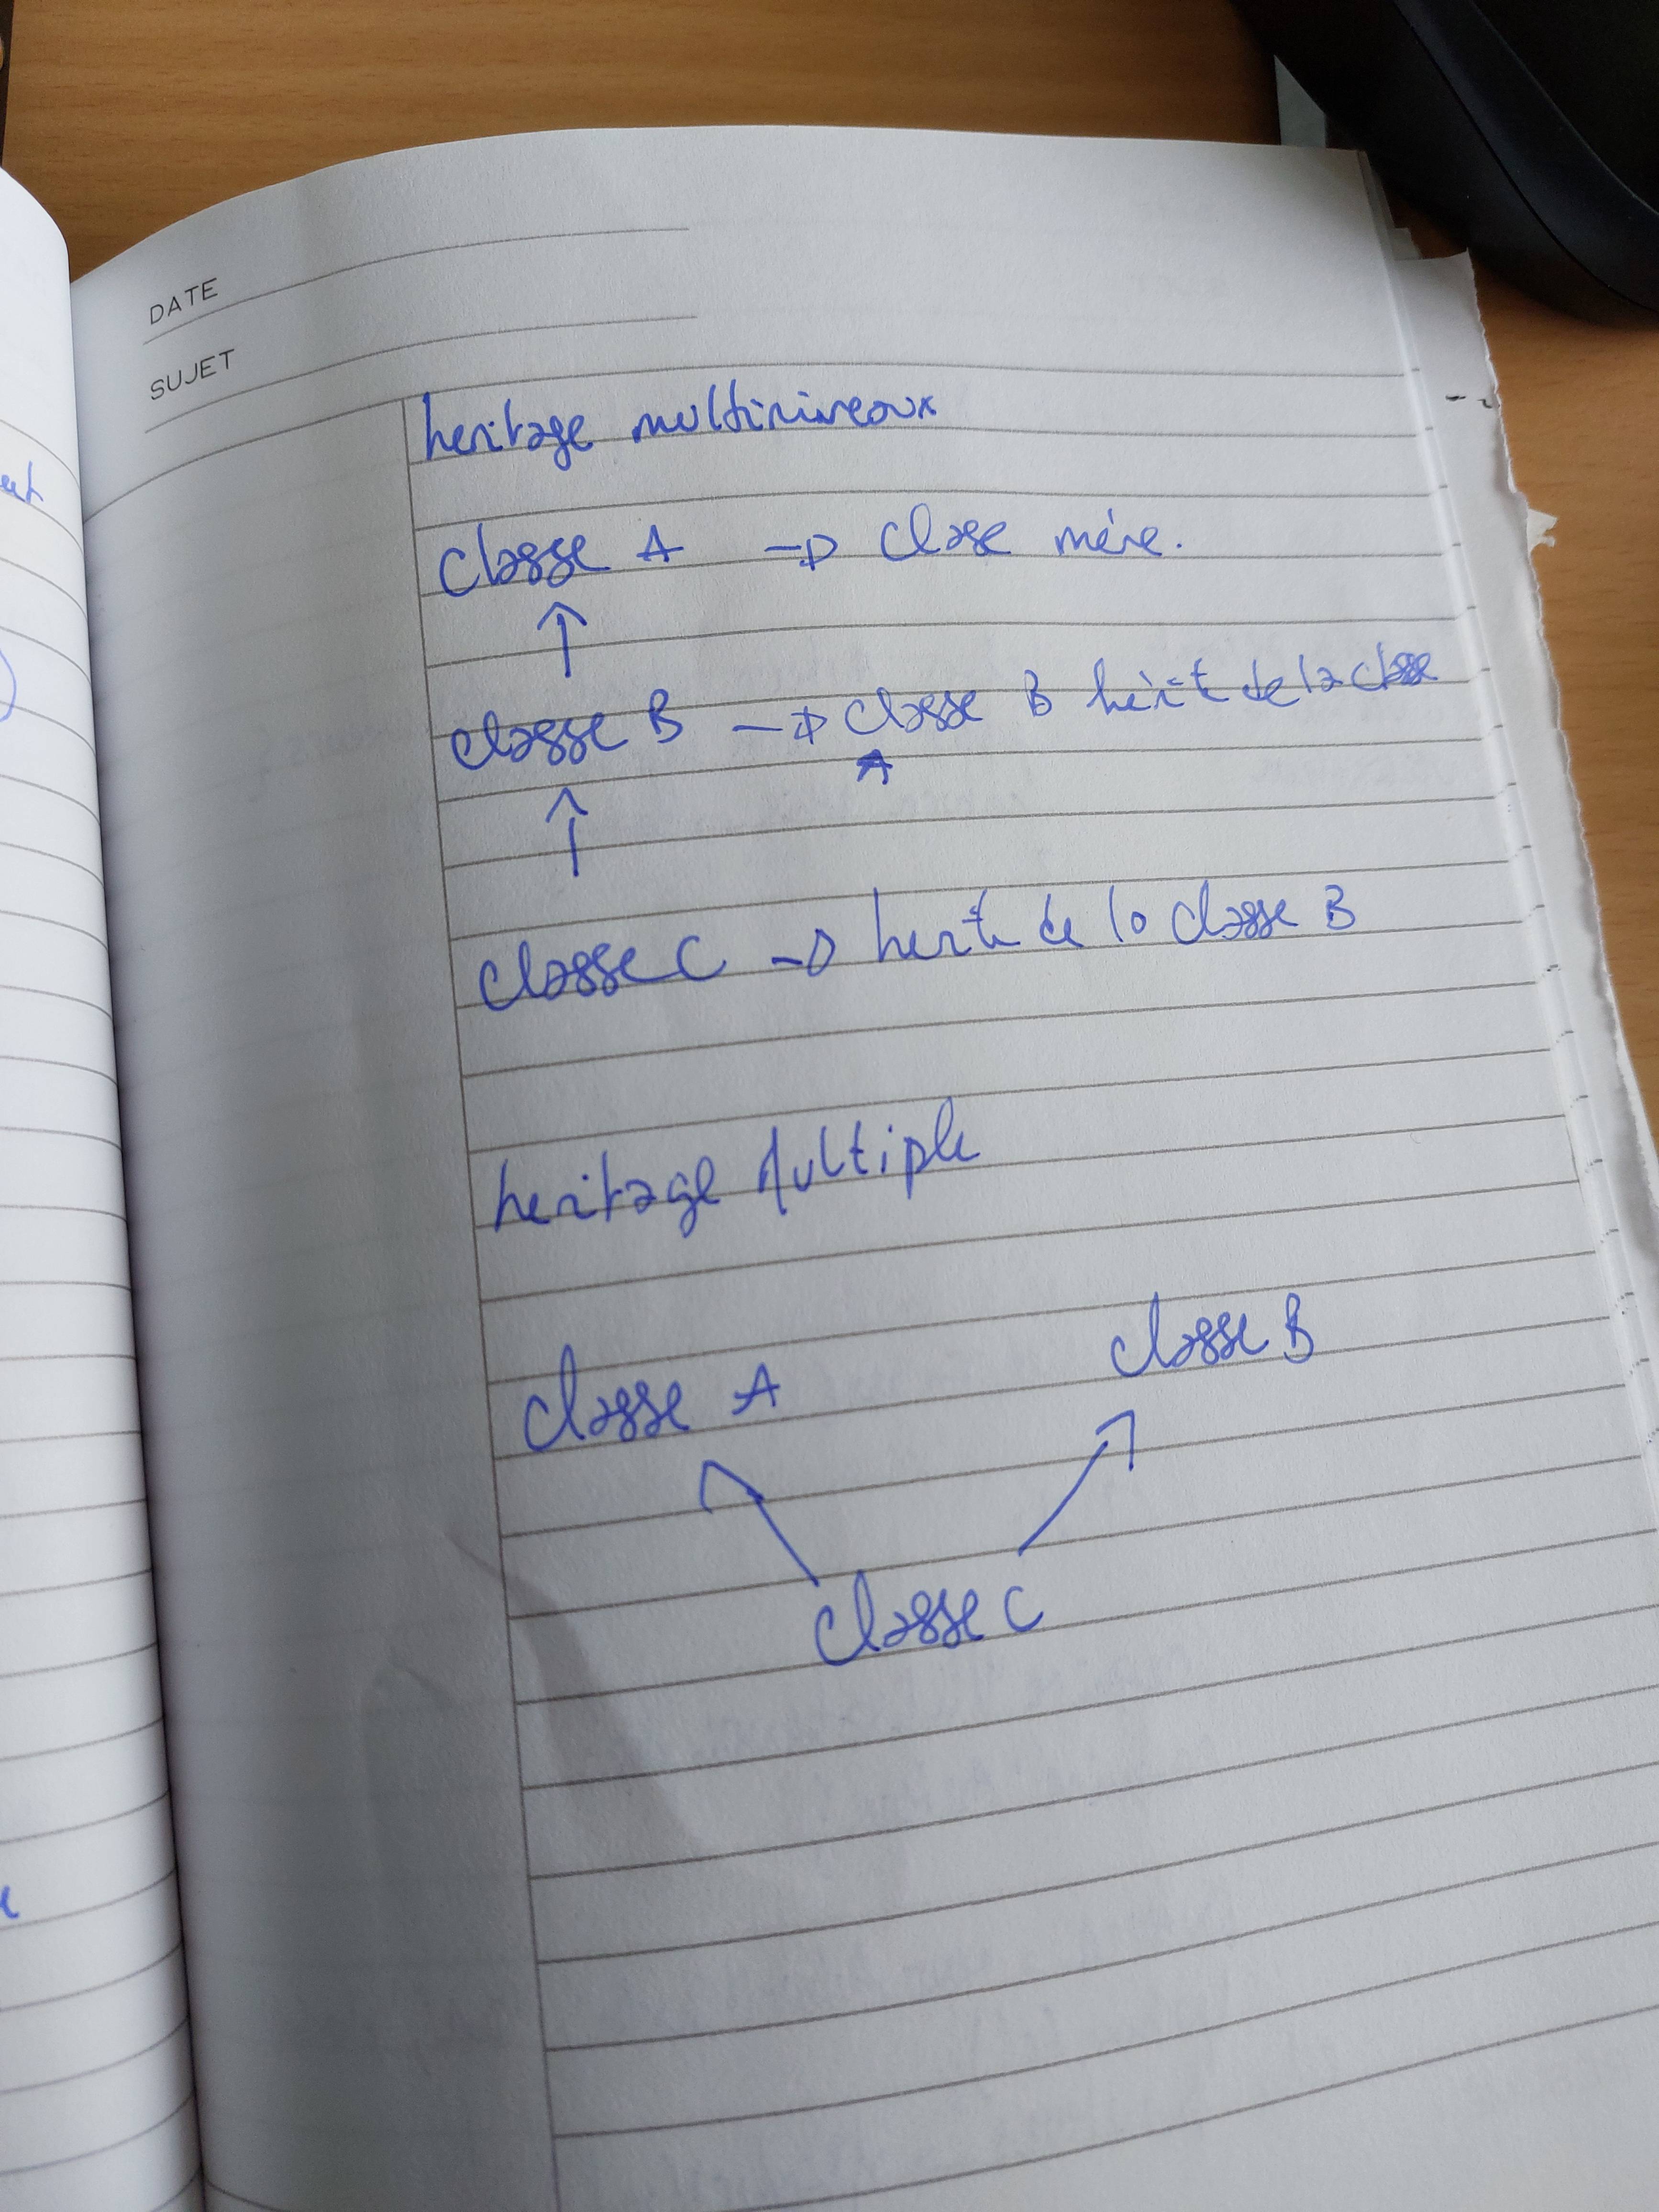 DATE
SUJET
heritage multiniveaux
classe A → classe mère.
↑
classe B → classe B hérite de la classe
A
↑
classe C → herite de la classe B
heritage Multiple
classe A classe B
classe C